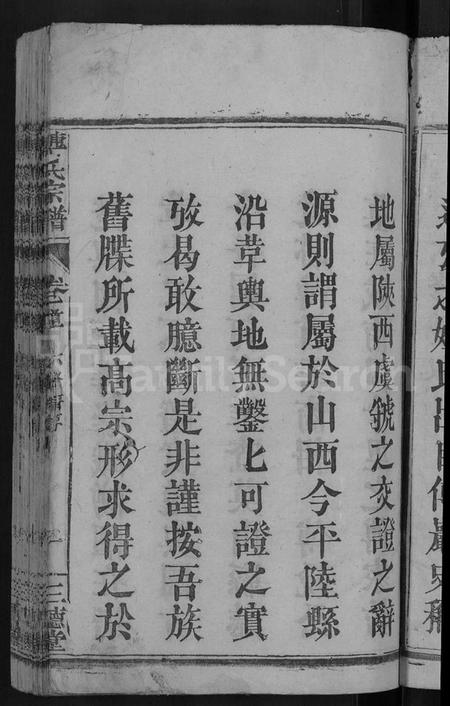 地屬陝西虞虢之交證之辭
源則謂屬於山西今平陸縣
沿革輿地無鑿匕可證之實
攷曷敢臆斷是非謹按吾族
舊牒所載高宗形求得之於
氏宗譜
卷首
三德堂
FamilySearch